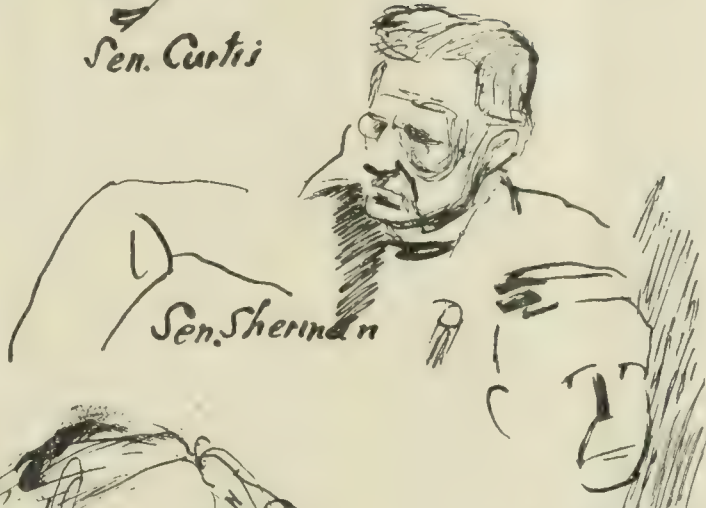 Sen. Curtis
Sen. Sherman